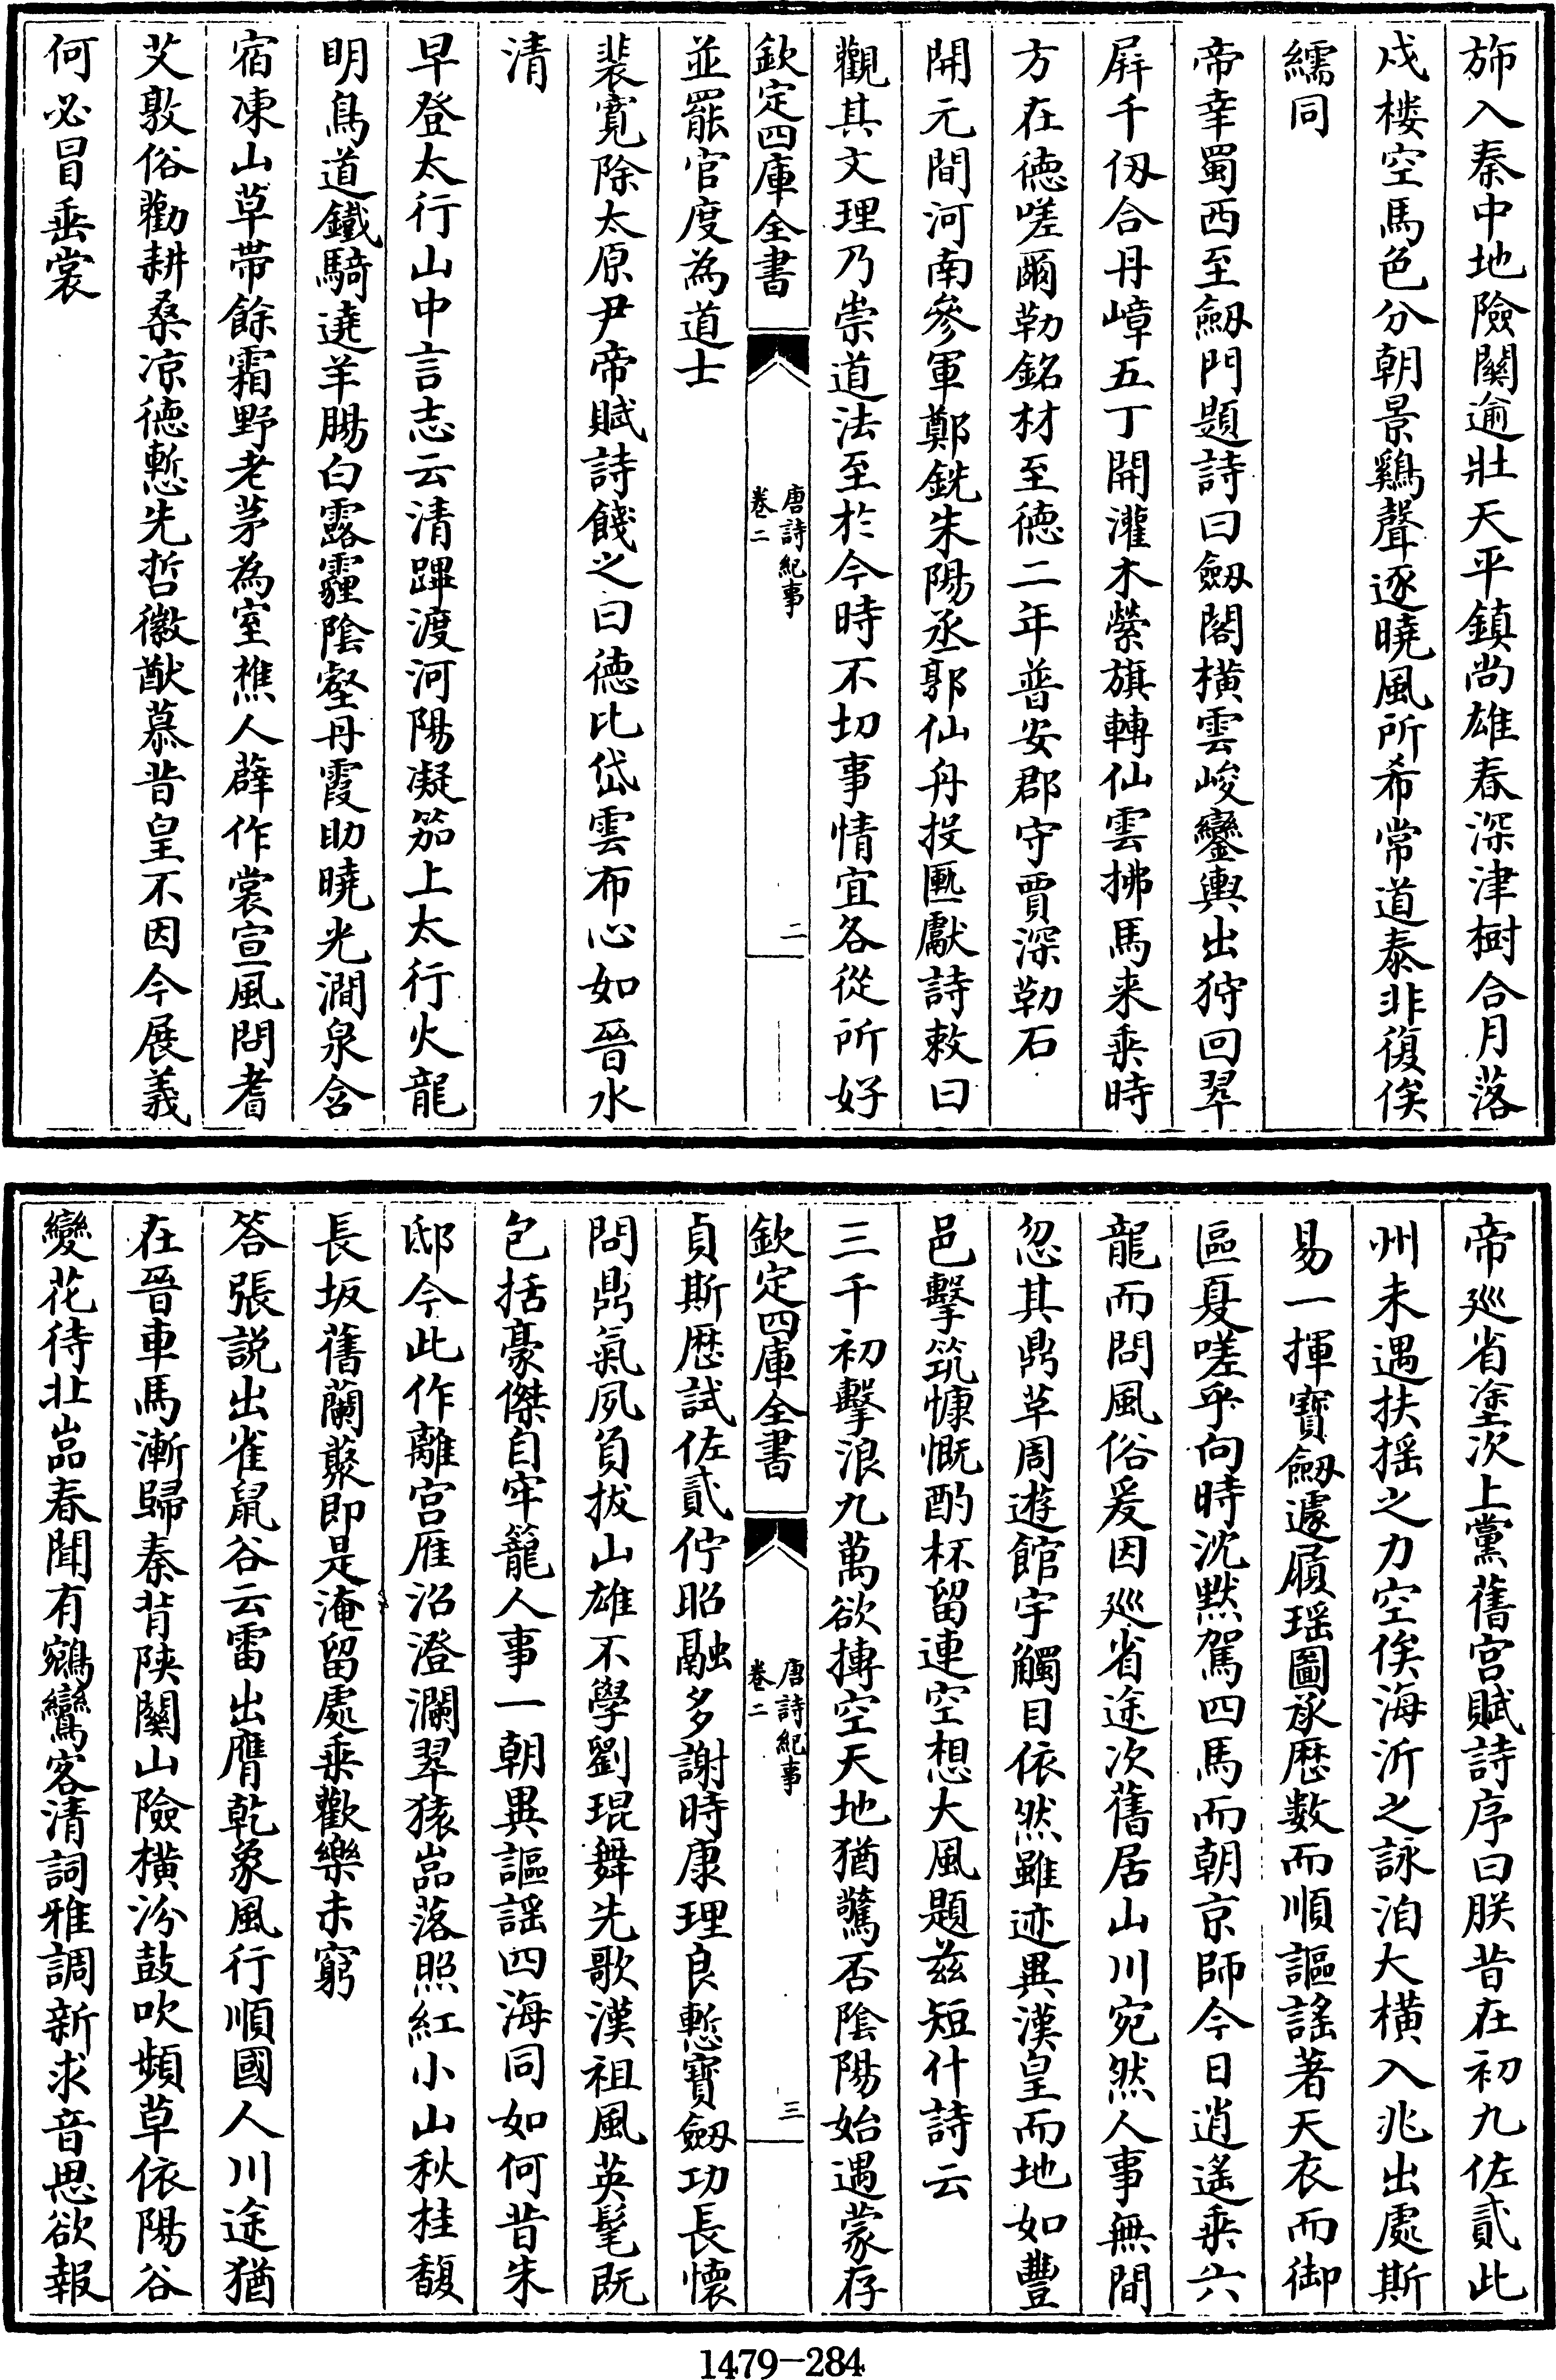 斾入秦中地險關逾壯天平鎮尚雄春深津樹合月落
戍樓空馬色分朝景鷄聲逐曉風所希常道泰非復俟
繻同
帝幸蜀西至劔門題詩曰劔閣橫雲峻鑾輿出狩回翠
屏千仭合丹嶂五丁開灌木縈旗轉仙雲拂馬来乗時
方在徳嗟爾勒銘材至徳二年普安郡守賈深勒石
開元間河南參軍鄭銑朱陽丞郭仙舟投匭獻詩敕曰
觀其文理乃崇道法至於今時不切事情宜各從所好
欽定四庫全書
唐詩紀事
卷二
二
並罷官度為道士
裴寛除太原尹帝賦詩餞之曰徳比岱雲布心如晉水
清
早登太行山中言志云清蹕渡河陽凝笳上太行火龍
明鳥道鐵騎遶羊腸白露霾陰壑丹霞助曉光澗泉含
宿凍山草帶餘霜野老茅為室樵人薜作裳宣風問耆
艾敦俗勸耕桑凉徳慙先哲徽猷慕昔皇不因今展義
何必冒垂裳
帝廵省塗次上黨舊宫賦詩序曰朕昔在初九佐貳此
州未遇扶揺之力空俟海沂之詠洎大橫入兆出處斯
易一揮寶劔遽履瑶圖承歴数而順謳謡著天衣而御
區夏嗟乎向時沈黙駕四馬而朝京師今日逍遥乗六
龍而問風俗爰因廵省途次舊居山川宛然人事無間
忽其鼎革周遊館宇觸目依然雖迹異漢皇而地如豐
邑擊筑慷慨酌杯留連空想大風題兹短什詩云
三千初擊浪九萬欲摶空天地猶驚否陰陽始遇蒙存
欽定四庫全書
唐詩紀事
卷二
三
貞斯歴試佐貳佇昭融多謝時康理良慙寶劔功長懷
問鼎氣夙負拔山雄不學劉琨舞先歌漢祖風英髦既
包括豪傑自牢籠人事一朝異謳謡四海同如何昔朱
邸今此作離宫雁沼澄瀾翠猿嵓落照紅小山秋桂馥
長坂舊蘭藂即是淹留處乗歡樂未窮
答張説出雀鼠谷云雷出膺乾象風行順國人川途猶
在晉車馬漸歸秦背陜關山險橫汾鼓吹頻草依陽谷
變花待北嵓春聞有鵷鸞客清詞雅調新求音思欲報
1479-284